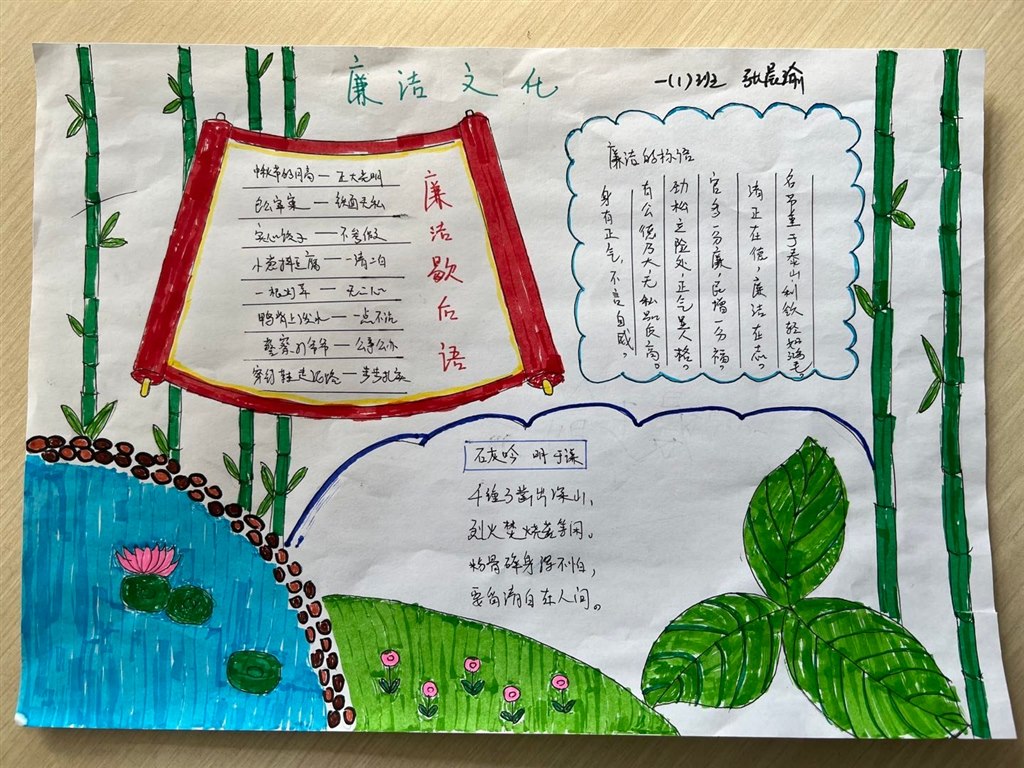 廉洁文化
一(1)班 张辰瑜
廉洁歇后语
中秋节的月亮—正大光明
包公审案—铁面无私
实心饺子—不掺假
小葱拌豆腐—一清二白
一根灯草—无二心
鸭背上泼水—一点不沾
警察的爷爷—公事公办
穿钉鞋走泥路—步步扎实
廉洁的标语
名节重于泰山利欲轻如鸿毛。
清正在德,廉洁在志。
官多一分廉,民增一分福。
劲松立险处,正气美人格。
有公德乃大,无私品自高。
身有正气,不言自威。
石灰吟 明 于谦
千锤万凿出深山,
烈火焚烧若等闲。
粉骨碎身浑不怕,
要留清白在人间。